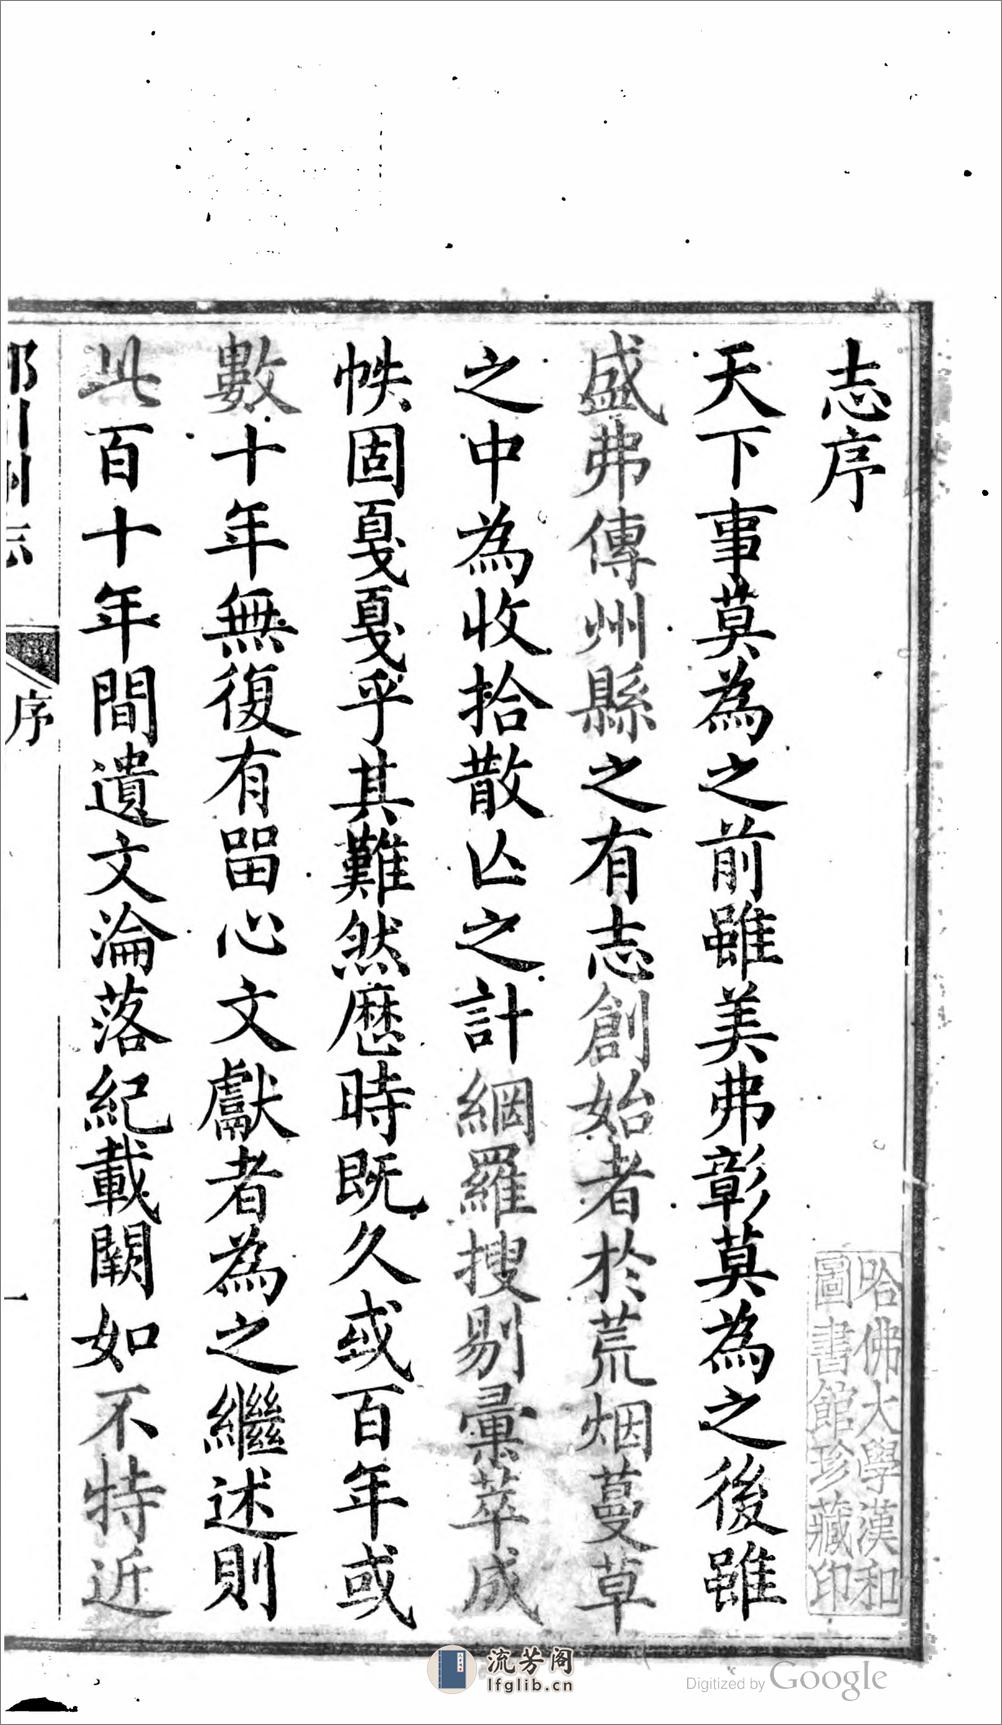 志序
天下事莫為之前雖美弗彰莫為之後雖
盛弗傳州縣之有志創始者於荒烟蔓草
之中為收拾散亾之計網羅搜剔彚萃成
帙固戛戛乎其難然歷時既久或百年或
數十年無復有畱心文獻者為之繼述則
此百十年間遺文淪落紀載闕如不特近
州志
序
一
哈佛大學漢和
圖書館珍藏印
流芳阁
lfglib.cn
Digitized by Google